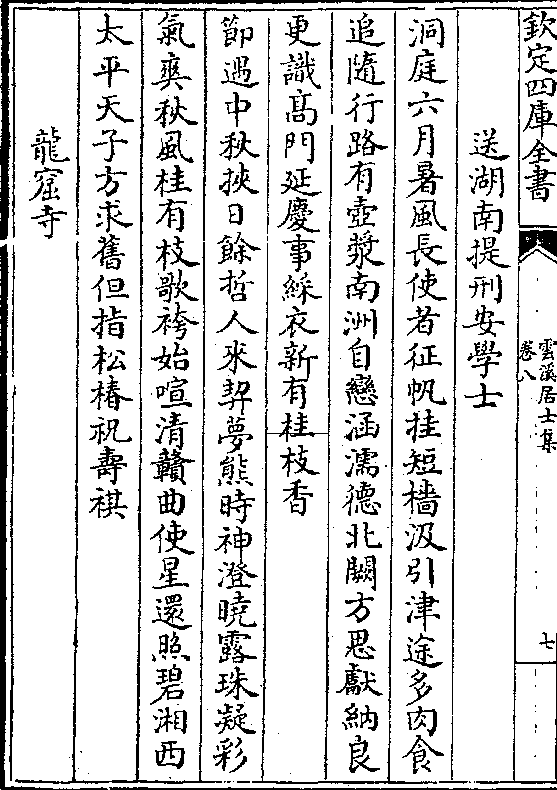 欽定四庫全書
雲溪居士集
卷八
七
送湖南提刑安學士
洞庭六月暑風長使者征帆挂短檣汲引津途多肉食
追隨行路有壺漿南洲自戀涵濡德北闕方思獻納良
更識髙門延慶事綵衣新有桂枝香
節遇中秋挾日餘哲人來契夢熊時神澄曉露珠凝彩
氣爽秋風桂有枝歌袴始喧清贛曲使星還照碧湘西
太平天子方求舊但指松椿祝壽祺
龍窟寺